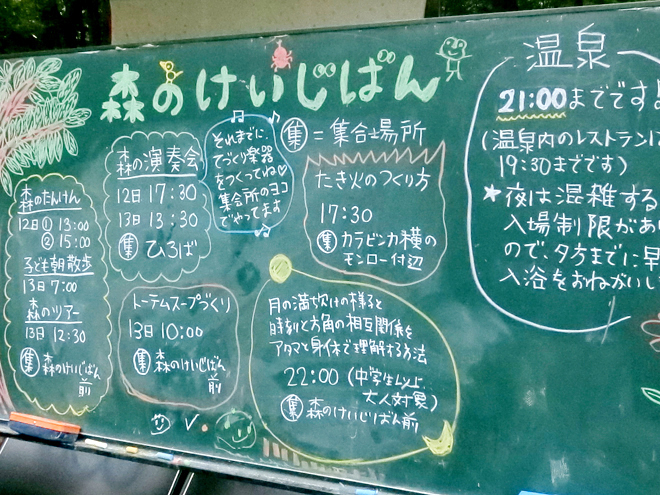 森のけいじばん
森のたんけん
12日① 13:00
② 15:00
子ども朝散歩
13日 7:00
森のツアー
13日 12:30
集 森のけいじばん
前
森の演奏会
12日 17:30
13日 13:30
集 ひろば
それまでに、
てづくり楽器
をつくってね♡
集会所のヨコ
でやってます
集 = 集合場所
たき火のつくり方
17:30
集 カラビンカ横の
モンロー付辺
トーテムスープづくり
13日 10:00
集 森のけいじばん
前
月の満ち欠けの様子と
時刻と方角の相互関係を
アタマと身体で理解する方法
22:00 (中学生以上
大人対象)
集 森のけいじばん前
温泉
21:00までです
(温泉内のレストランは
19:30までです)
★夜は混雑する
入場制限があ
ので、夕方までに早
入浴をおねがいし